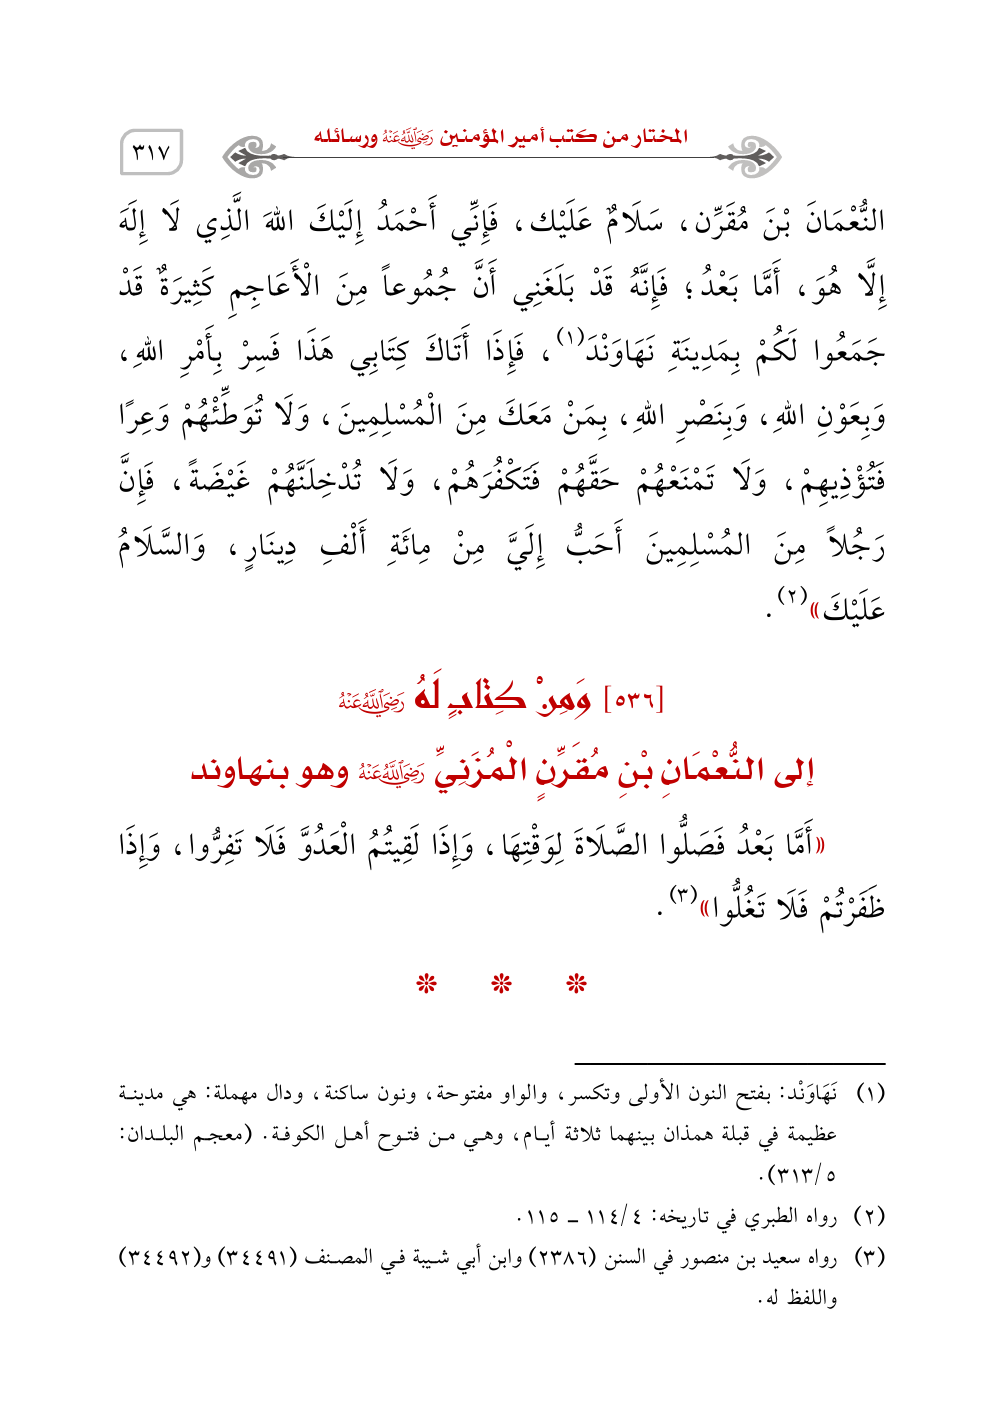 المختار من كتب أمير المؤمنين رَضِيَ اللَّهُ عَنْهُ ورسائله
٣١٧
النُّعْمَانَ بْنَ مُقَرِّن، سَلَامٌ عَلَيْك، فَإِنِّي أَحْمَدُ إِلَيْكَ اللهَ الَّذِي لَا إِلَهَ
إِلَّا هُوَ، أَمَّا بَعْدُ؛ فَإِنَّهُ قَدْ بَلَغَنِي أَنَّ جُمُوعاً مِنَ الْأَعَاجِمِ كَثِيرَةٌ قَدْ
جَمَعُوا لَكُمْ بِمَدِينَةِ نَهَاوَنْدَ(١)، فَإِذَا أَتَاكَ كِتَابِي هَذَا فَسِرْ بِأَمْرِ اللهِ،
وَبِعَوْنِ اللهِ، وَبِنَصْرِ اللهِ، بِمَنْ مَعَكَ مِنَ الْمُسْلِمِينَ، وَلَا تُوَطِّئْهُمْ وَعِرًا
فَتُؤْذِيهِمْ، وَلَا تَمْنَعْهُمْ حَقَّهُمْ فَتَكْفُرَهُمْ، وَلَا تُدْخِلَنَّهُمْ غَيْضَةً، فَإِنَّ
رَجُلاً مِنَ المُسْلِمِينَ أَحَبُّ إِلَيَّ مِنْ مِائَةِ أَلْفِ دِينَارٍ، وَالسَّلَامُ
عَلَيْكَ»(٢).
[٥٣٦] وَمِنْ كِتَابٍ لَهُ رَضِيَ اللَّهُ عَنْهُ
إلى النُّعْمَانِ بْنِ مُقَرِّنٍ الْمُزَنِيِّ رَضِيَ اللَّهُ عَنْهُ وهو بنهاوند
«أَمَّا بَعْدُ فَصَلُّوا الصَّلَاةَ لِوَقْتِهَا، وَإِذَا لَقِيتُمُ الْعَدُوَّ فَلَا تَفِرُّوا، وَإِذَا
ظَفَرْتُمْ فَلَا تَغُلُّوا»(٣).
* * *
(١) نَهَاوَنْد: بفتح النون الأولى وتكسر، والواو مفتوحة، ونون ساكنة، ودال مهملة: هي مدينة
عظيمة في قبلة همذان بينهما ثلاثة أيام، وهي من فتوح أهل الكوفة. (معجم البلدان:
٣١٣/٥).
(٢) رواه الطبري في تاريخه: ١١٤/٤ ـ ١١٥.
(٣) رواه سعيد بن منصور في السنن (٢٣٨٦) وابن أبي شيبة في المصنف (٣٤٤٩١) و(٣٤٤٩٢)
واللفظ له.